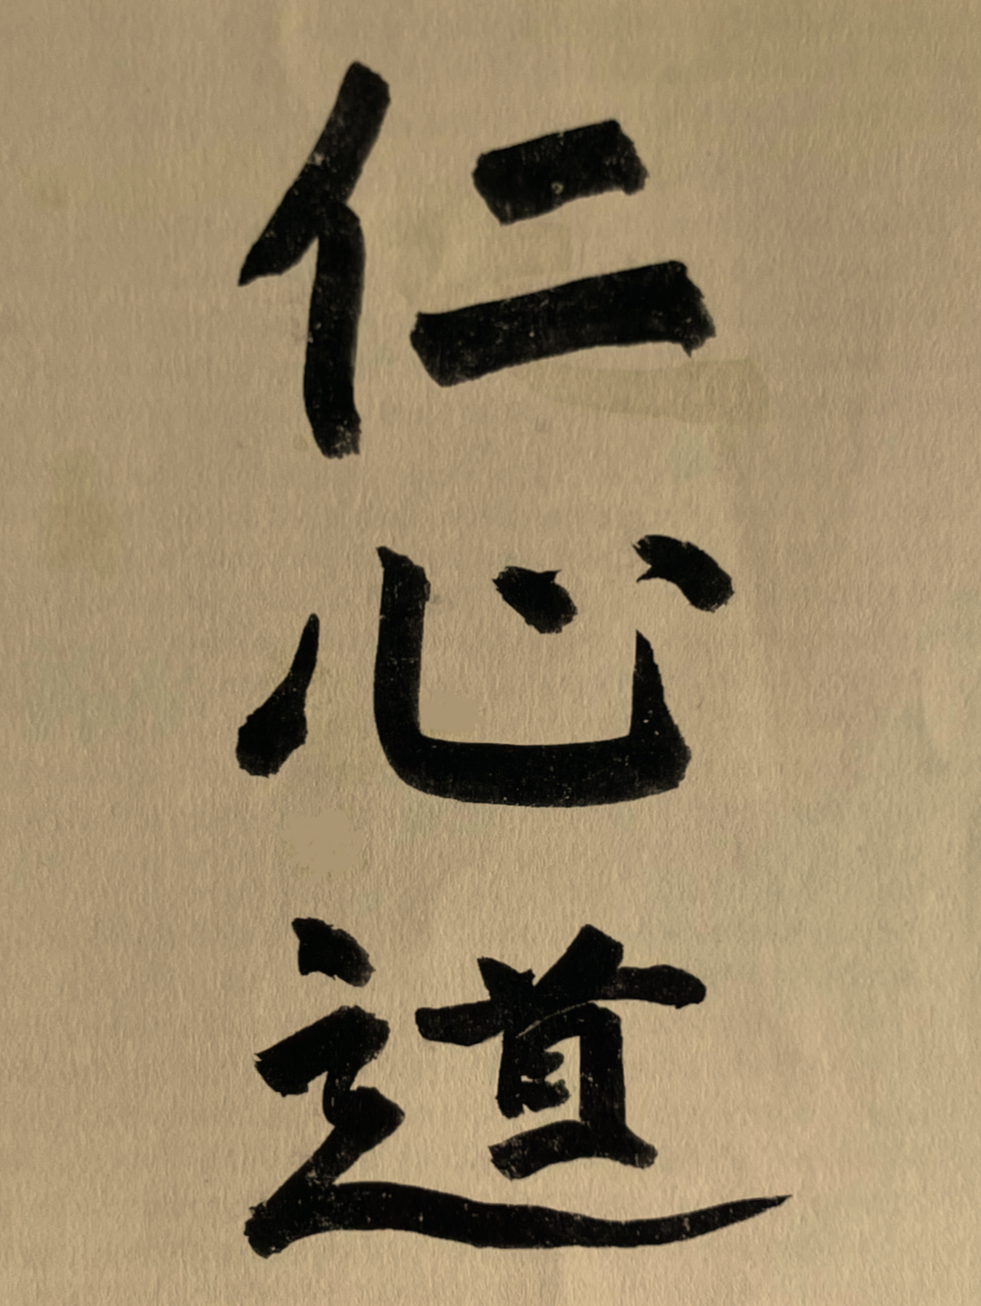 仁心道